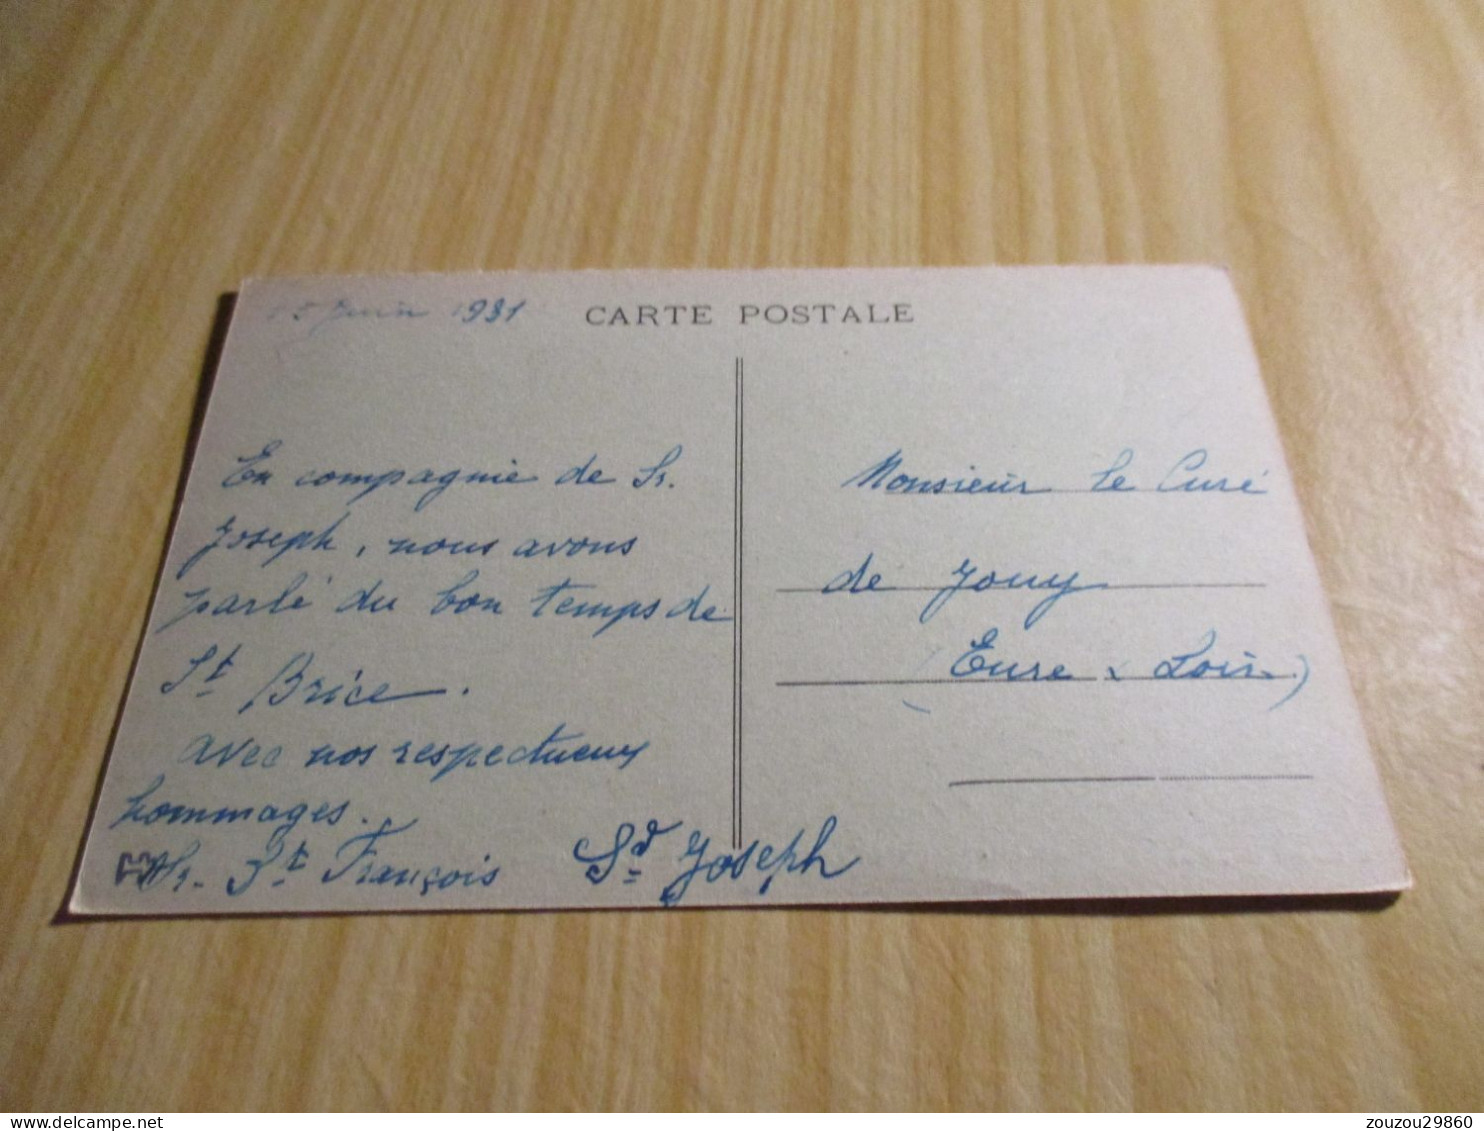 Juin 1931
CARTE POSTALE
En compagnie de Sr.
Joseph, nous avons
parlé du bon temps de
St Brice.
avec nos respectueux
hommages.
Sr. St François
Sr Joseph
Monsieur le Curé
de Jouy
(Eure & Loir)
zouzou29860